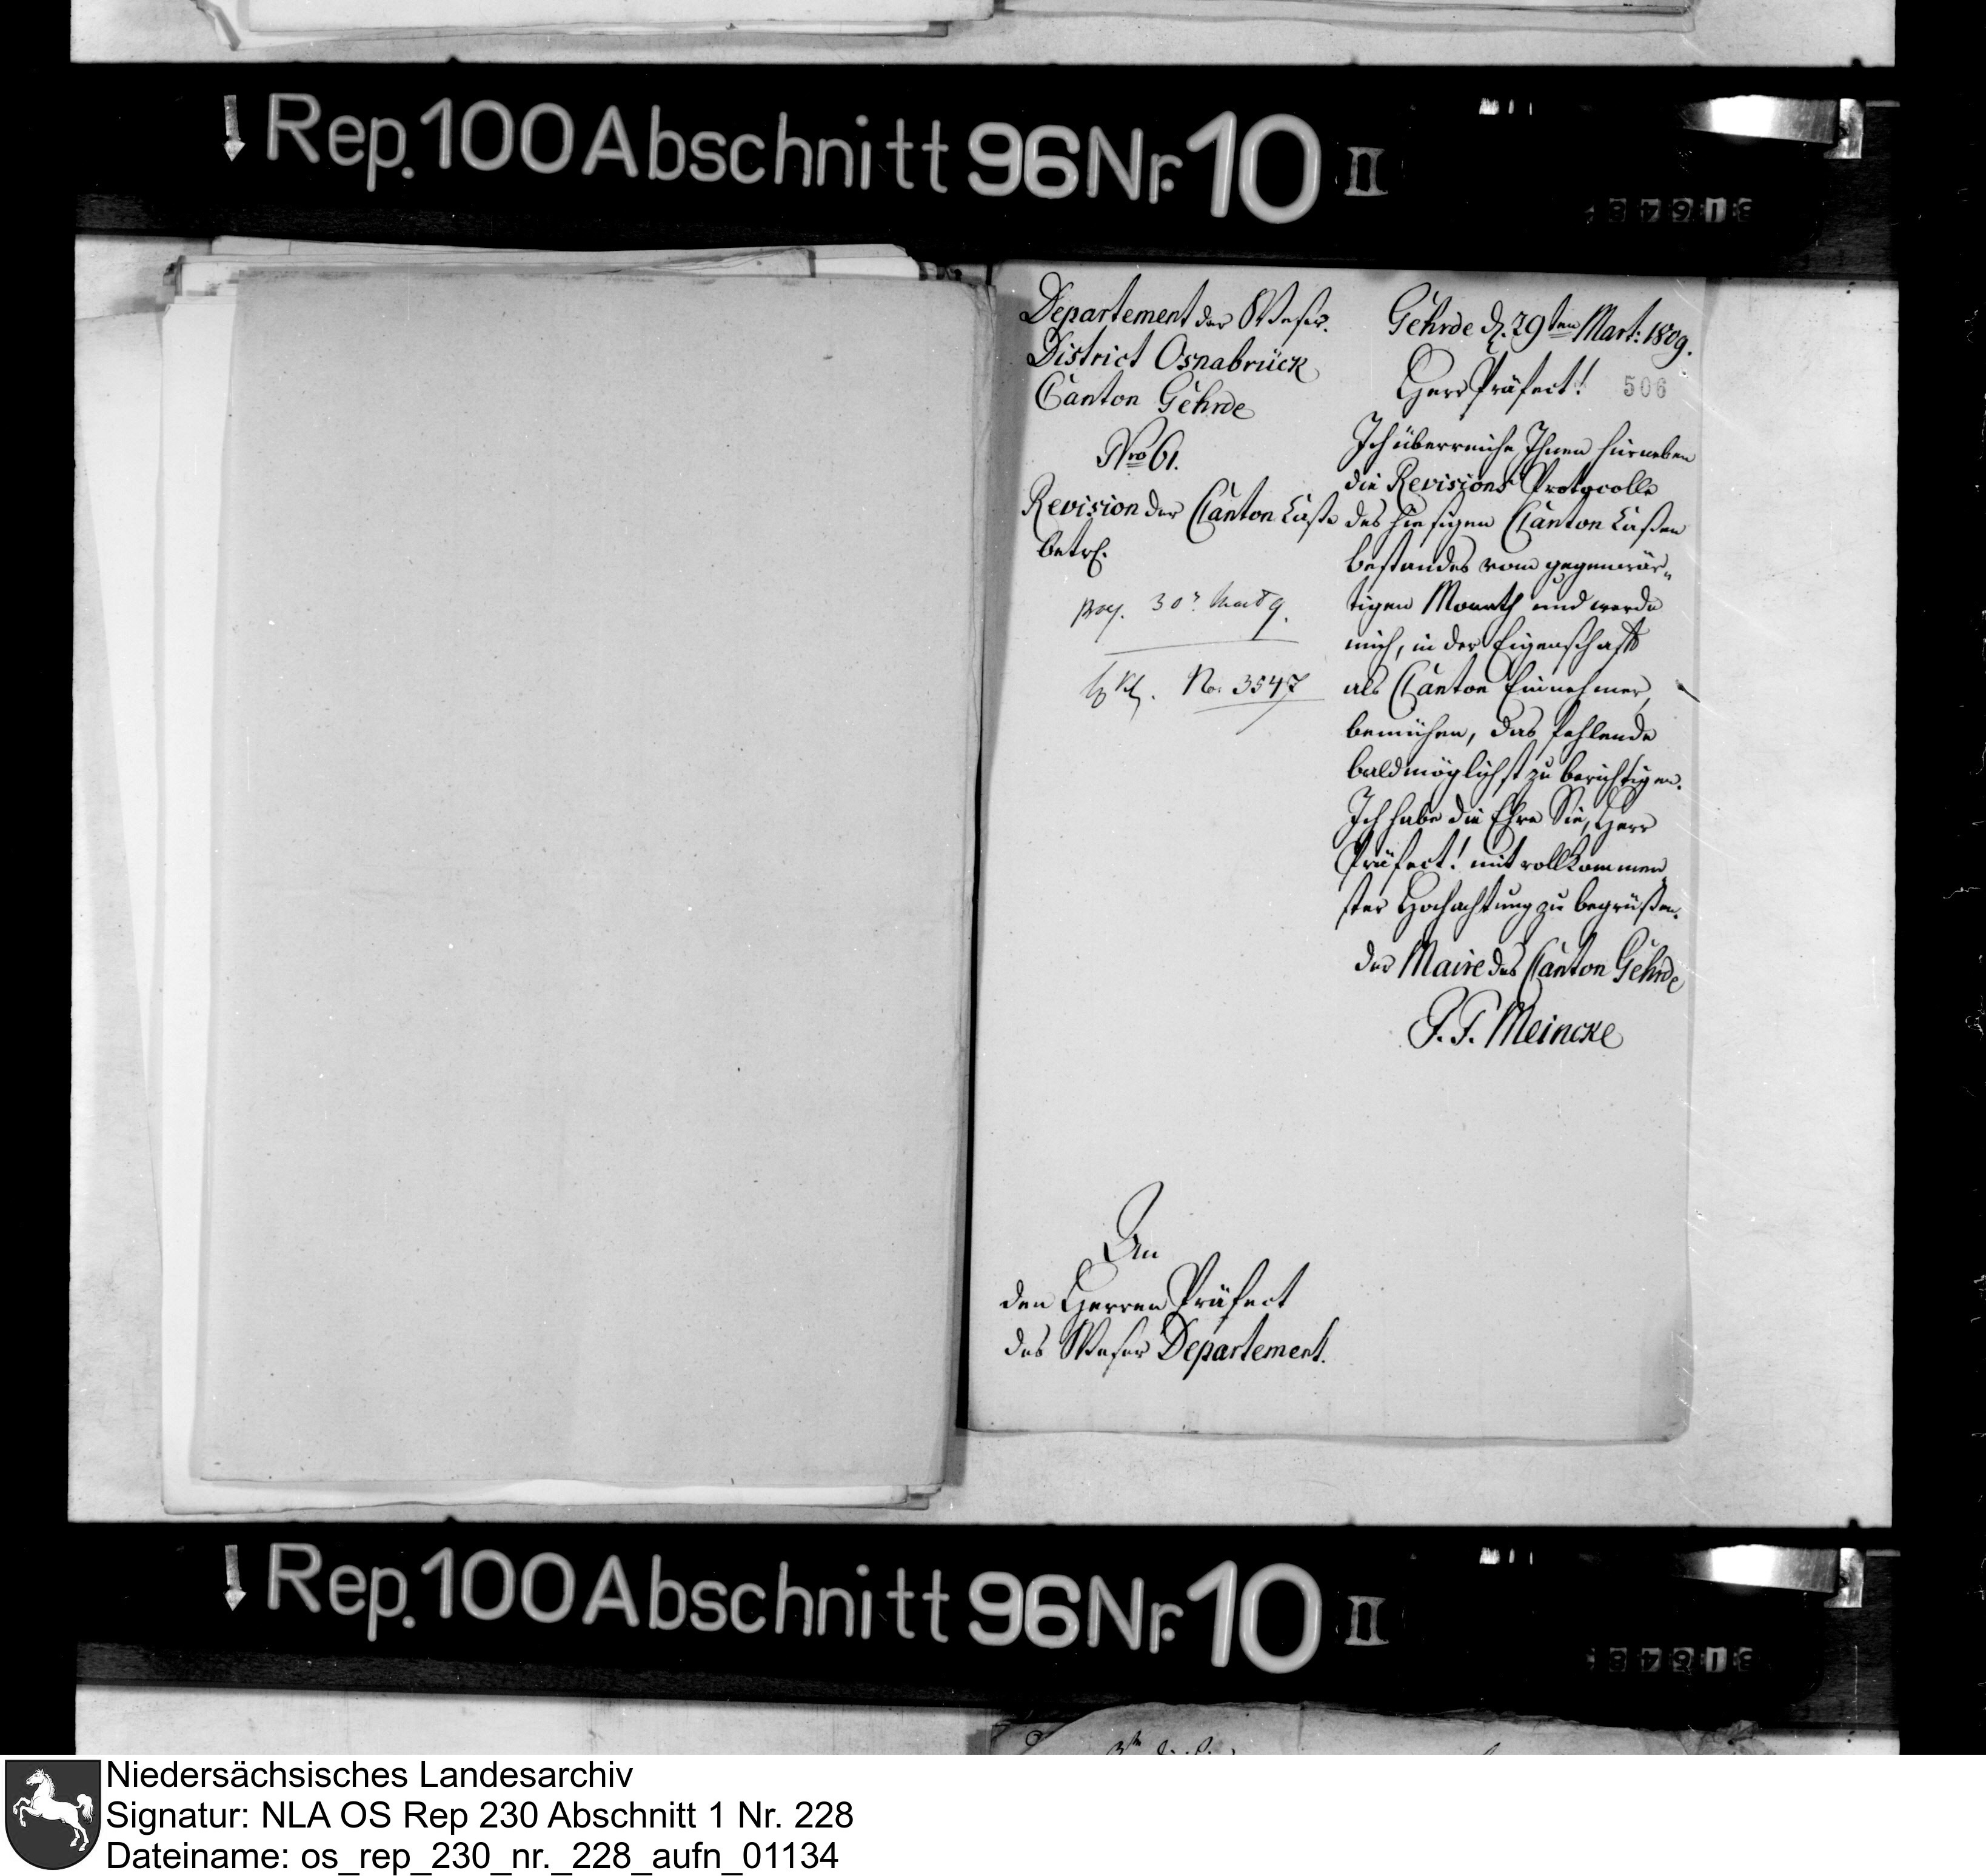 Rep. 100 Abschnitt 96 Nr. 10 II
Departement der Weser.
District Osnabrück
Canton Gehrde
Nro 61.
Revision der Canton Casse
betrf.
30 Mart 9.
No. 3547
Gehrde d. 29ten Mart: 1809.
Herr Präfect!
506
Ich überreiche Ihnen hierneben
die Revisions Protocolle
des hiesigen Canton Cassen
bestandes vom gegenwär„
tigen Monath und werde
mich, in der Eigenschaft
als Canton Einnehmer,
bemühen, das fehlende
baldmöglichst zu berichtigen.
Ich habe die Ehre Sie, Herr
Präfect! mit vollkommen
ster Hochachtung zu begrüßen.
der Maire des Canton Gehrde
Meincke
An
den Herren Präfect
des Weser Departement.
Rep. 100 Abschnitt 96 Nr. 10 II
Niedersächsisches Landesarchiv
Signatur: NLA OS Rep 230 Abschnitt 1 Nr. 228
Dateiname: os_rep_230_nr._228_aufn_01134